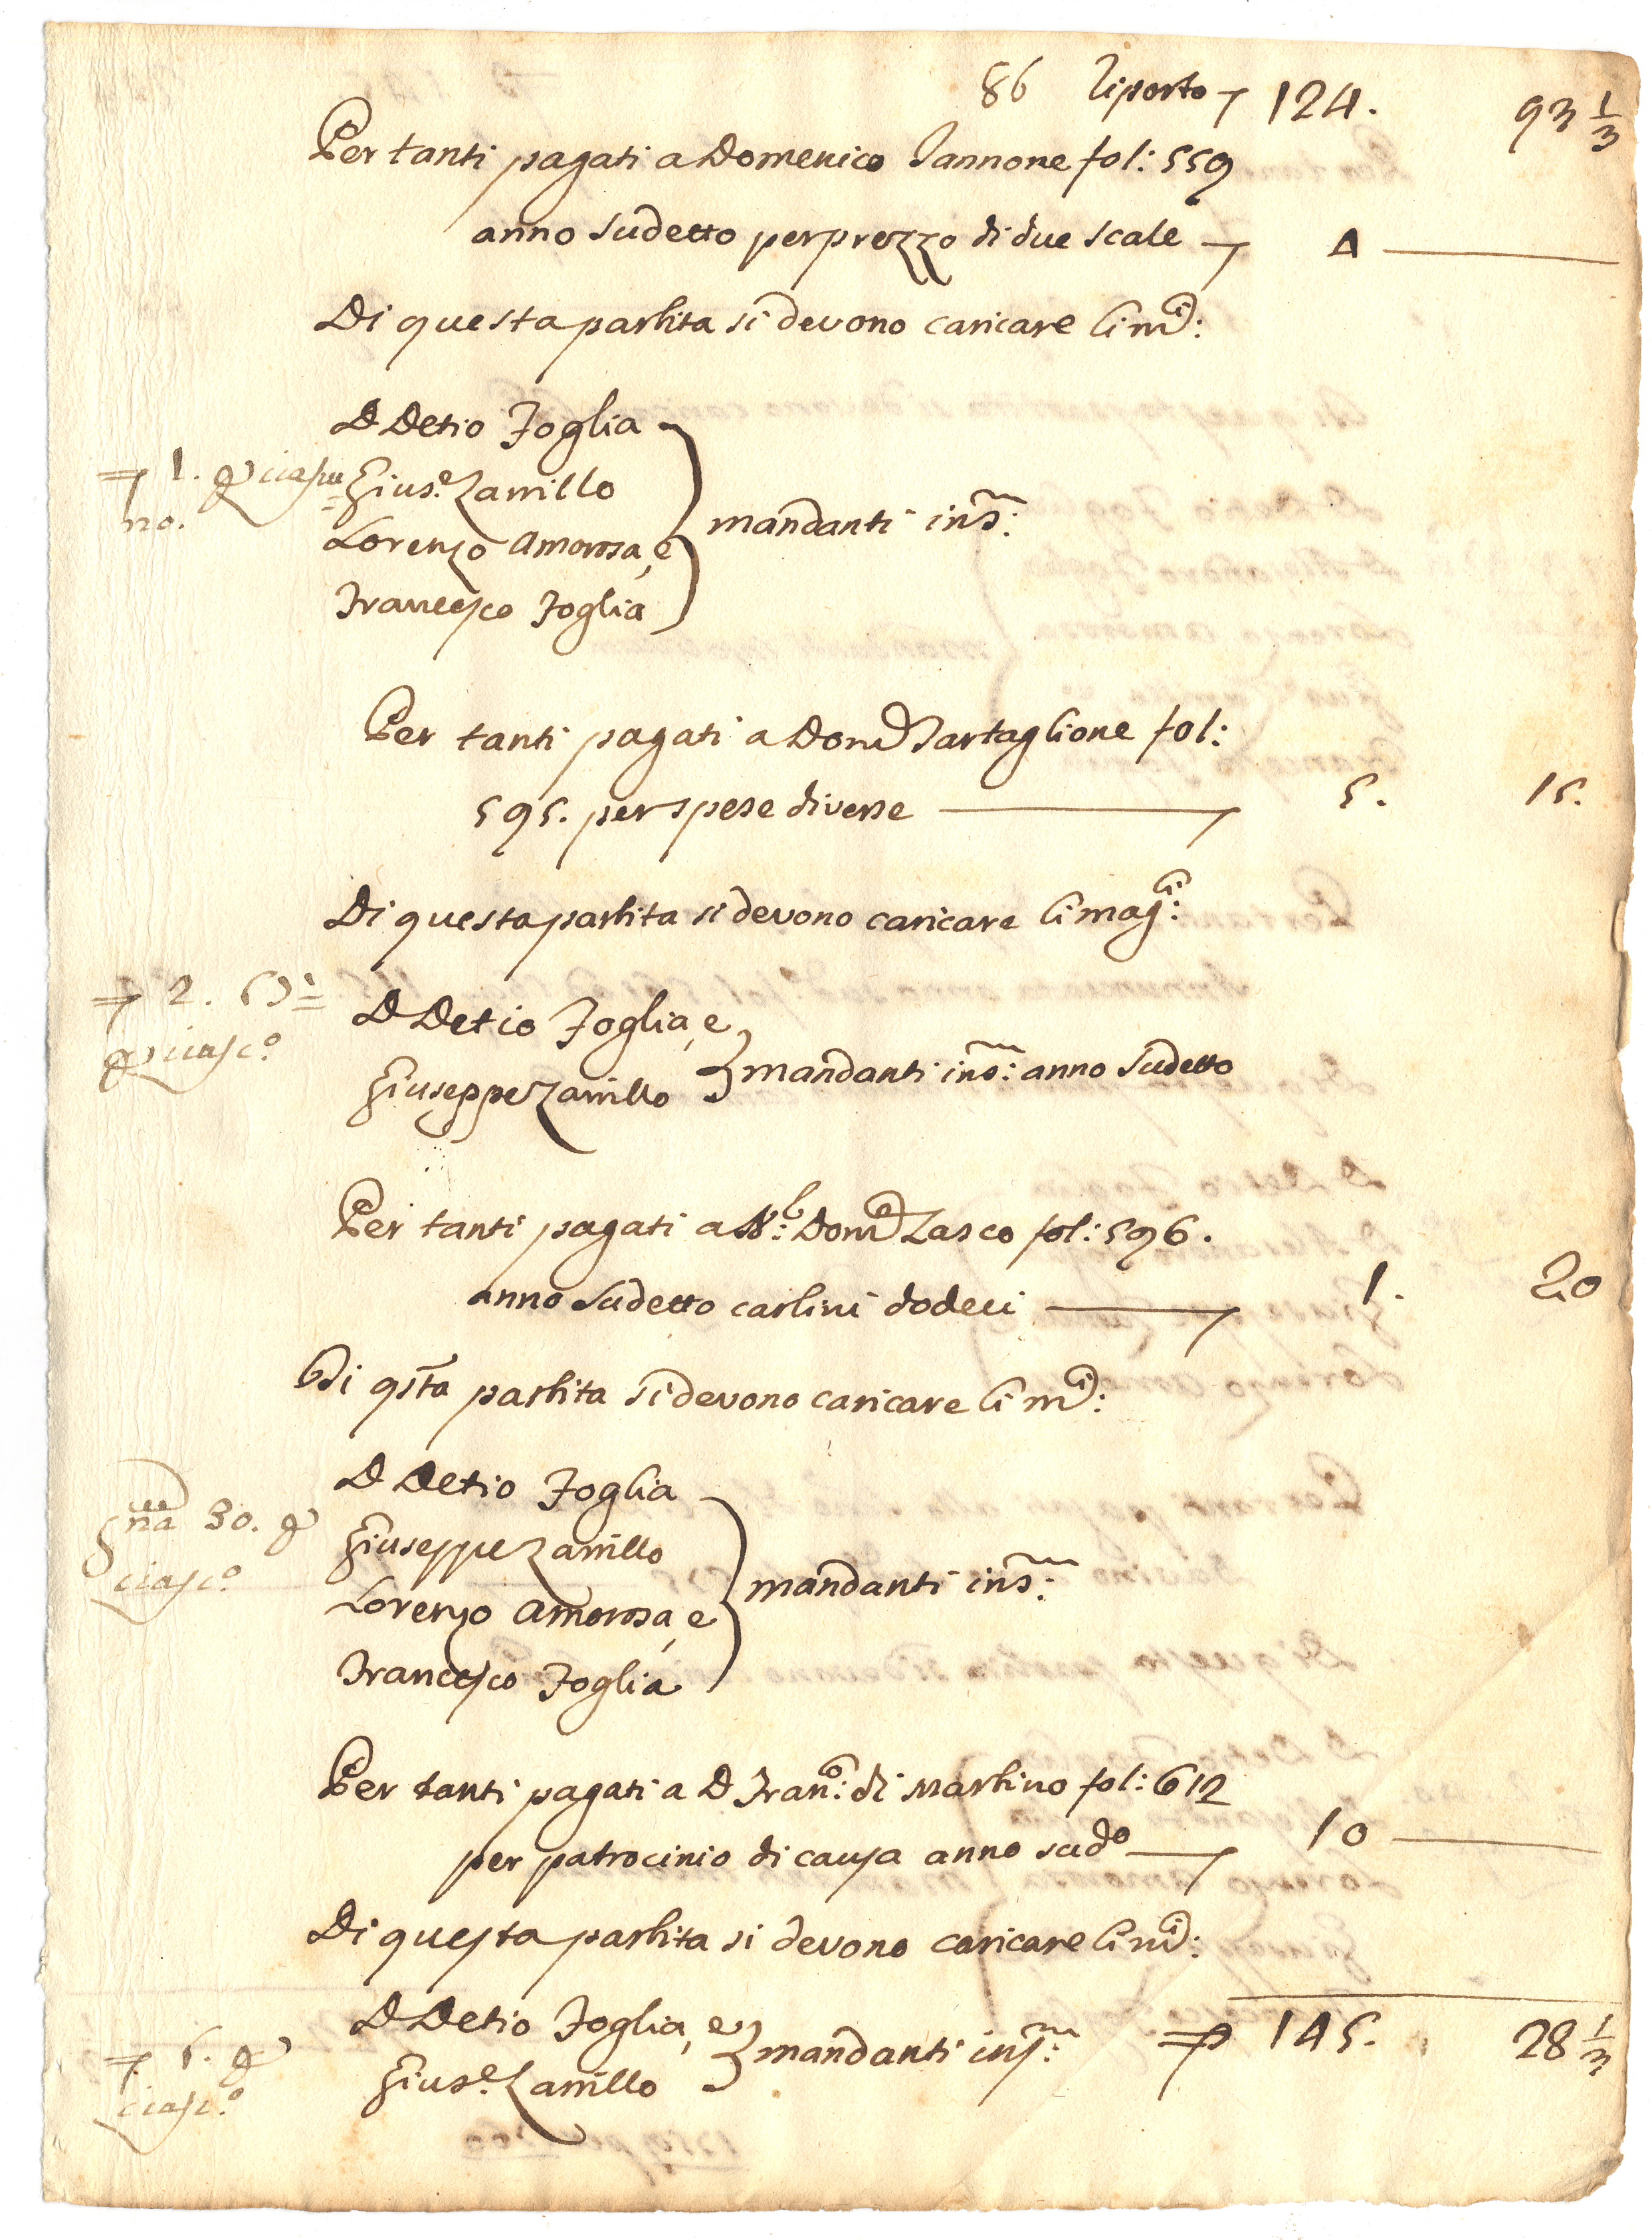 86 Riporto 124. 93 1/3
Per tanti pagati a Domenico Iannone fol: 559
anno sudetto per prezzo di due scale 4
Di questa partita si devono caricare li m.i:
D Detio Foglia
1. p ciascu Gius.e Zarrillo
no. mandanti ins.m:
Lorenzo Amorosa, e
Francesco Foglia
Per tanti pagati a Dom.o Tartaglione fol:
595. per spese diverse 5. 15.
Di questa partita si devono caricare li mag.ci:
2. D Detio Foglia, e
p ciasc.o mandanti ins.m: anno sudetto
Giuseppe Zarrillo
Per tanti pagati a Dom.o Zasco fol: 596.
anno sudetto carlini dodeci 1. 20
Di q.sta partita si devono caricare li m.i:
D Detio Foglia
30. p Giuseppe Zarrillo
ciasc.o mandanti ins.m:
Lorenzo Amorosa, e
Francesco Foglia
Per tanti pagati a D Fran.o: di Martino fol: 612
per patrocinio di causa anno sud.o 10
Di questa partita si devono caricare li m.i:
D Detio Foglia, e
5. p mandanti ins.m: 145. 28 1/3
ciasc.o Gius.e Zarrillo